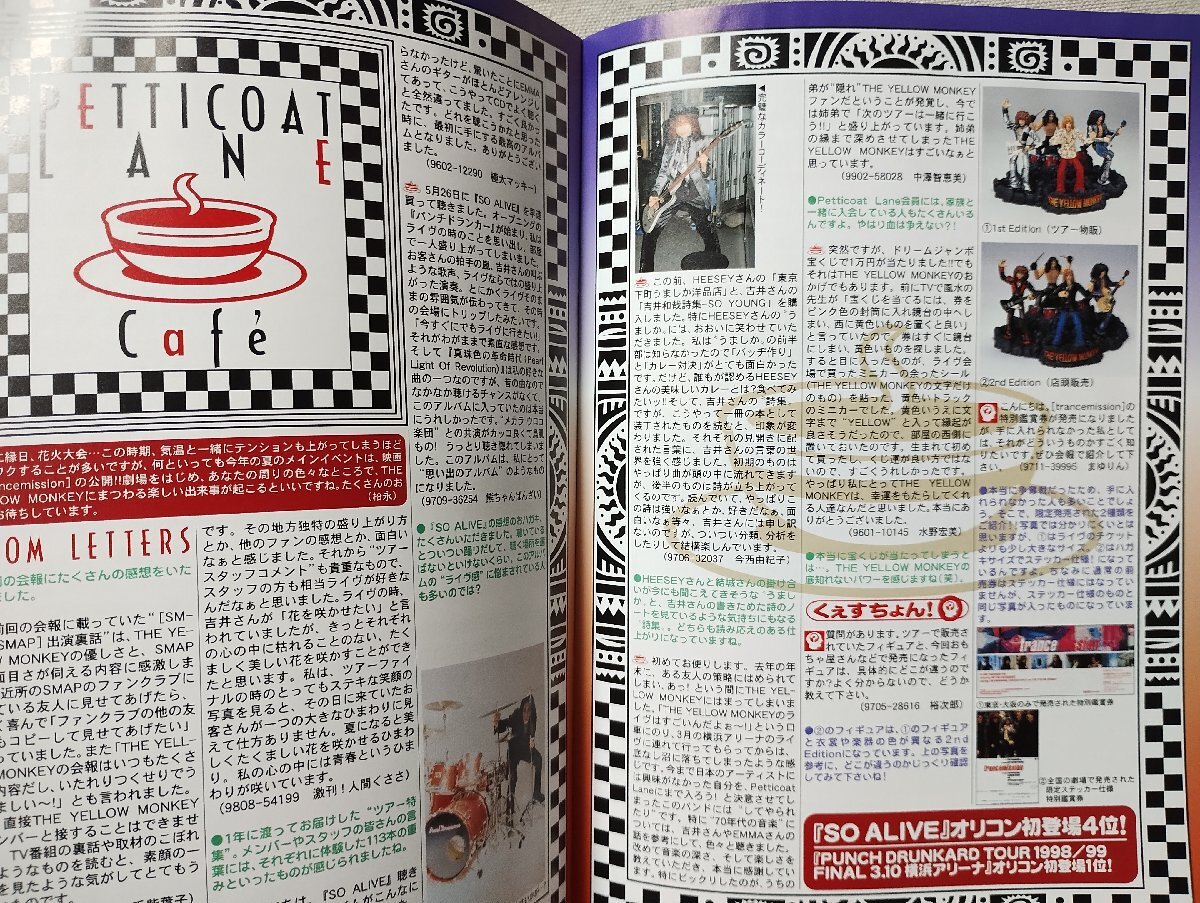 PETTICOAT
LANE
Café
に縁日、花火大会…この時期、気温と一緒にテンションも上がってしまうほど
クすることが多いですが、何といっても今年の夏のメインイベントは、映画
ncemission]の公開!!劇場をはじめ、あなたの周りの色々なところで、THE
LOW MONKEYにまつわる楽しい出来事が起こるといいですね。たくさんのお
待ちしています。
(柏永)
OM LETTERS
の会報にたくさんの感想をいた
ました。
前回の会報に載っていた"[SM-
SMAP]出演裏話"は、THE YE-
W MONKEYの優しさと、SMAP
面目さが伺える内容に感激しま
近所のSMAPのファンクラブに
ている友人に見せてあげたら、
く喜んで「ファンクラブの他の友
もコピーして見せてあげたい」
っていました。また「THE YELL-
MONKEYの会報はいつもたくさ
内容だし、いたれりつくせりでう
ましい〜!」とも言われました。
直接THE YELLOW MONKEY
ンバーと接することはできませ
TV番組の裏話や取材のこぼれ
ようなものを読むと、素顔の一
を見たような気がしてとてもう
です。その地方独特の盛り上がり方
とか、他のファンの感想とか、面白い
なぁと感じました。それから"ツアー
スタッフコメント"も貴重なもので、
スタッフの方も相当ライヴが好きな
んだなぁと思いました。ライヴの時、
吉井さんが「花を咲かせたい」と言
われていましたが、きっとそれぞれ
の心の中に枯れることのない、たく
ましく美しい花を咲かすことができ
たと思います。私は、ツアーファイ
ナルの時のとってもステキな笑顔の
写真を見ると、その日に来ていたお
客さんが一つの大きなひまわりに見
えて仕方ありません。夏になると美
しくたくましい花を咲かせるひまわ
り。私の心の中には青春というひま
わりが咲いています。
(9808-54199 激刊!人間くささ)
●1年に渡ってお届けした"ツアー特
集"。メンバーやスタッフの皆さんの言
葉には、それぞれに体験した113本の重
みといったものが感じられましたね。
『SO ALIVE』聴き
らなかったけど、驚いたことにEMMA
さんのギターがほとんどアレンジし
てあって、こうやってCDでよく聴く
と全然違ってました。すごく良かっ
たです。どれを聴こうかなと思った
時に、最初に手にする最高のアルバ
ムとなりました。ありがとうござい
ました。
(9602-12290 極太マッキー)
5月26日に『SO ALIVE』を早速
買って聴きました。オープニングの
『パンチドランカー』が始まり、私は
ライヴの時のことを思い出し、部屋
で一人盛り上がってしまいました。
お客さんの拍手の嵐、吉井さんの叫ぶ
ような歌声、ライヴならではの盛り上
がった演奏。とにかくライヴそのま
まの雰囲気が伝わってきて、その時
の会場にトリップしたみたいです。
「今すぐにでもライヴに行きたい!」
それがわがままで素直な感想です。
そして『真珠色の革命時代(Pearl
Light Of Revolution)』は私の好きな
曲の一つなのですが、昔の曲なので
なかなか聴けるチャンスがなくて、
このアルバムに入っていたのは本当
にうれしかったです。"メカラウロコ
楽団"との共演がカッコ良くて良風
もので、うっとり聴き惚れてしまいま
した。このアルバムは、私にとって
"思い出のアルバム"のようなもの
になりました。
(9709-36254 熊ちゃんばんざい)
●『SO ALIVE』の感想のおハガキ、
たくさんいただきました。聴いている
とついつい踊りだして、聴く場所を選
ばないといけないくらい、このアルバ
ムの"ライヴ感"に悩まされている人
も多いのでは?
◀完璧なカラーコーディネート!
この前、HEESEYさんの「東京
下町うましか洋品店」と、吉井さんの
「吉井和哉詩集-SO YOUNG」を購
入しました。特にHEESEYさんの"う
ましか"には、おおいに笑わせていた
だきました。私は"うましか"の前半
部は知らなかったので「バッヂ作り」
と「カレー対決」がとても面白かった
です。だけど、誰もが認めるHEESEY
さんの美味しいカレーとは?食べてみ
たいッ!!そして、吉井さんの"詩集"
ですが、こうやって一冊の本として
装丁されたものを読むと、印象が変
わりました。それぞれの見開きに記
された言葉に、吉井さんの言葉の世
界を強く感じました。初期のものは
やっぱり曲が頭の中に流れてきます
が、後半のものは詩が立ち上がって
くるのです。読んでいて、やっぱりこ
の詩は強いなぁとか、好きだなぁ、面
白いなぁ等々、吉井さんには申し訳
ないのですが、ついつい分類、分析を
したりして結構楽しんでいます。
(9706-32037 今西由紀子)
●HEESEYさんと結城さんの掛け合
いが今にも聞こえてきそうな"うまし
か"と、吉井さんのためた詩のノー
トを見ているような気持ちにもなる
"詩集"。どちらも読み応えのある仕
上がりになっていますね。
初めてお便りします。去年の年
末に、ある友人の策略にはめられて
しまい、あっ!という間にTHE YEL-
LOW MONKEYにはまってしまいま
した。「THE YELLOW MONKEYのラ
イヴはすごいんだよぉー!」という口
車にのり、3月の横浜アリーナのライ
ヴに連れて行ってもらってからは、
底なし沼に落ちてしまったような感
じです。今まで日本のアーティストに
は興味がなかった自分を、Petticoat
Laneにまで入ろう!と決意させてし
まったこのバンドには"してやられ
たり"です。特に"70年代の音楽"に
ついては、吉井さんやEMMAさんの
話を参考にして、色々と聴きました。
改めて音楽の深さ、そして楽しさを
教えていただき、本当に感謝していま
す。特にビックリしたのが、うちの
弟が"隠れ"THE YELLOW MONKEY
ファンだということが発覚し、今で
は姉弟で「次のツアーは一緒に行こ
う!!」と盛り上がっています。姉弟
の縁まで深めさせてしまったTHE
YELLOW MONKEYはすごいなぁと
思っています。
(9902-58028 中澤智恵美)
●Petticoat Lane会員には、家族と
一緒に入会している人もたくさんいる
んですよ。やはり血は争えない?!
突然ですが、ドリームジャンボ
宝くじで1万円が当たりました!!でも
それはTHE YELLOW MONKEYのお
かげでもあります。前にTVで風水の
先生が「宝くじを当てるには、券を
ピンク色の封筒に入れ鏡台の中へし
まい、西に黄色いものを置くと良い」
と言っていたので、券はすぐに鏡台
にしまい、黄色いものを探しました。
すると目に入ったものが、ライヴ会
場で買ったミニカーの余ったシール
(THE YELLOW MONKEYの文字だけ
のもの)を貼った、黄色いトラック
のミニカーでした。黄色いうえに文
字まで"YELLOW"と入って縁起が
良さそうだったので、部屋の西側に
置いていたのです。生まれて初め
て買ったし、くじ運が良い方ではな
いので、すごくうれしかったです。
やっぱり私にとってTHE YELLOW
MONKEYは、幸運をもたらしてくれ
る人達なんだと思いました。本当に
ありがとうございました。
(9601-10145 水野宏美)
●本当に宝くじが当たってしまうと
は…。THE YELLOW MONKEYの
底知れないパワーを感じますね(笑)。
くぇすちょん!
質問があります。ツアーで販売さ
れていたフィギュアと、今回おも
ちゃ屋さんなどで発売になったフィ
ギュアは、具体的にどこが違うので
すか?よく分からないので、どうか
教えて下さい。
(9705-28616 裕次郎)
●②のフィギュアは、①のフィギュア
と衣裳や楽器の色が異なる2nd
Editionになっています。上の写真を
参考に、どこが違うのかじっくり確認
してみて下さいね!
THE YELLOW MONKEY
①1st Edition(ツアー物販)
THE YELLOW MONKEY
②2nd Edition(店頭販売)
こんにちは。[trancemission]の
特別鑑賞券が発売になりました
が、手に入れられなかった私として
は、それがどういうものかすごく知
りたいです。ぜひ会報で紹介して下
さい。 (9711-39995 まゆりん)
●本当に争奪戦だったため、手に入
れられなかった人も多いことでしょ
う。そこで、限定発売された2種類を
ご紹介!写真では分かりにくいとは
思いますが、①はライヴのチケット
よりも少し大きなサイズ、②はハガ
キサイズでステッカー仕様にな
っているんです。ちなみに通常の前
売券はステッカー仕様にはなってい
ませんが、ステッカー仕様のものと
同じ写真が入ったものになっていま
す。
trance
①東京・大阪のみで発売された特別鑑賞券
②全国の劇場で発売された
限定ステッカー仕様
特別鑑賞券
『SO ALIVE』オリコン初登場4位!
『PUNCH DRUNKARD TOUR 1998/99
FINAL 3.10 横浜アリーナ』オリコン初登場1位!